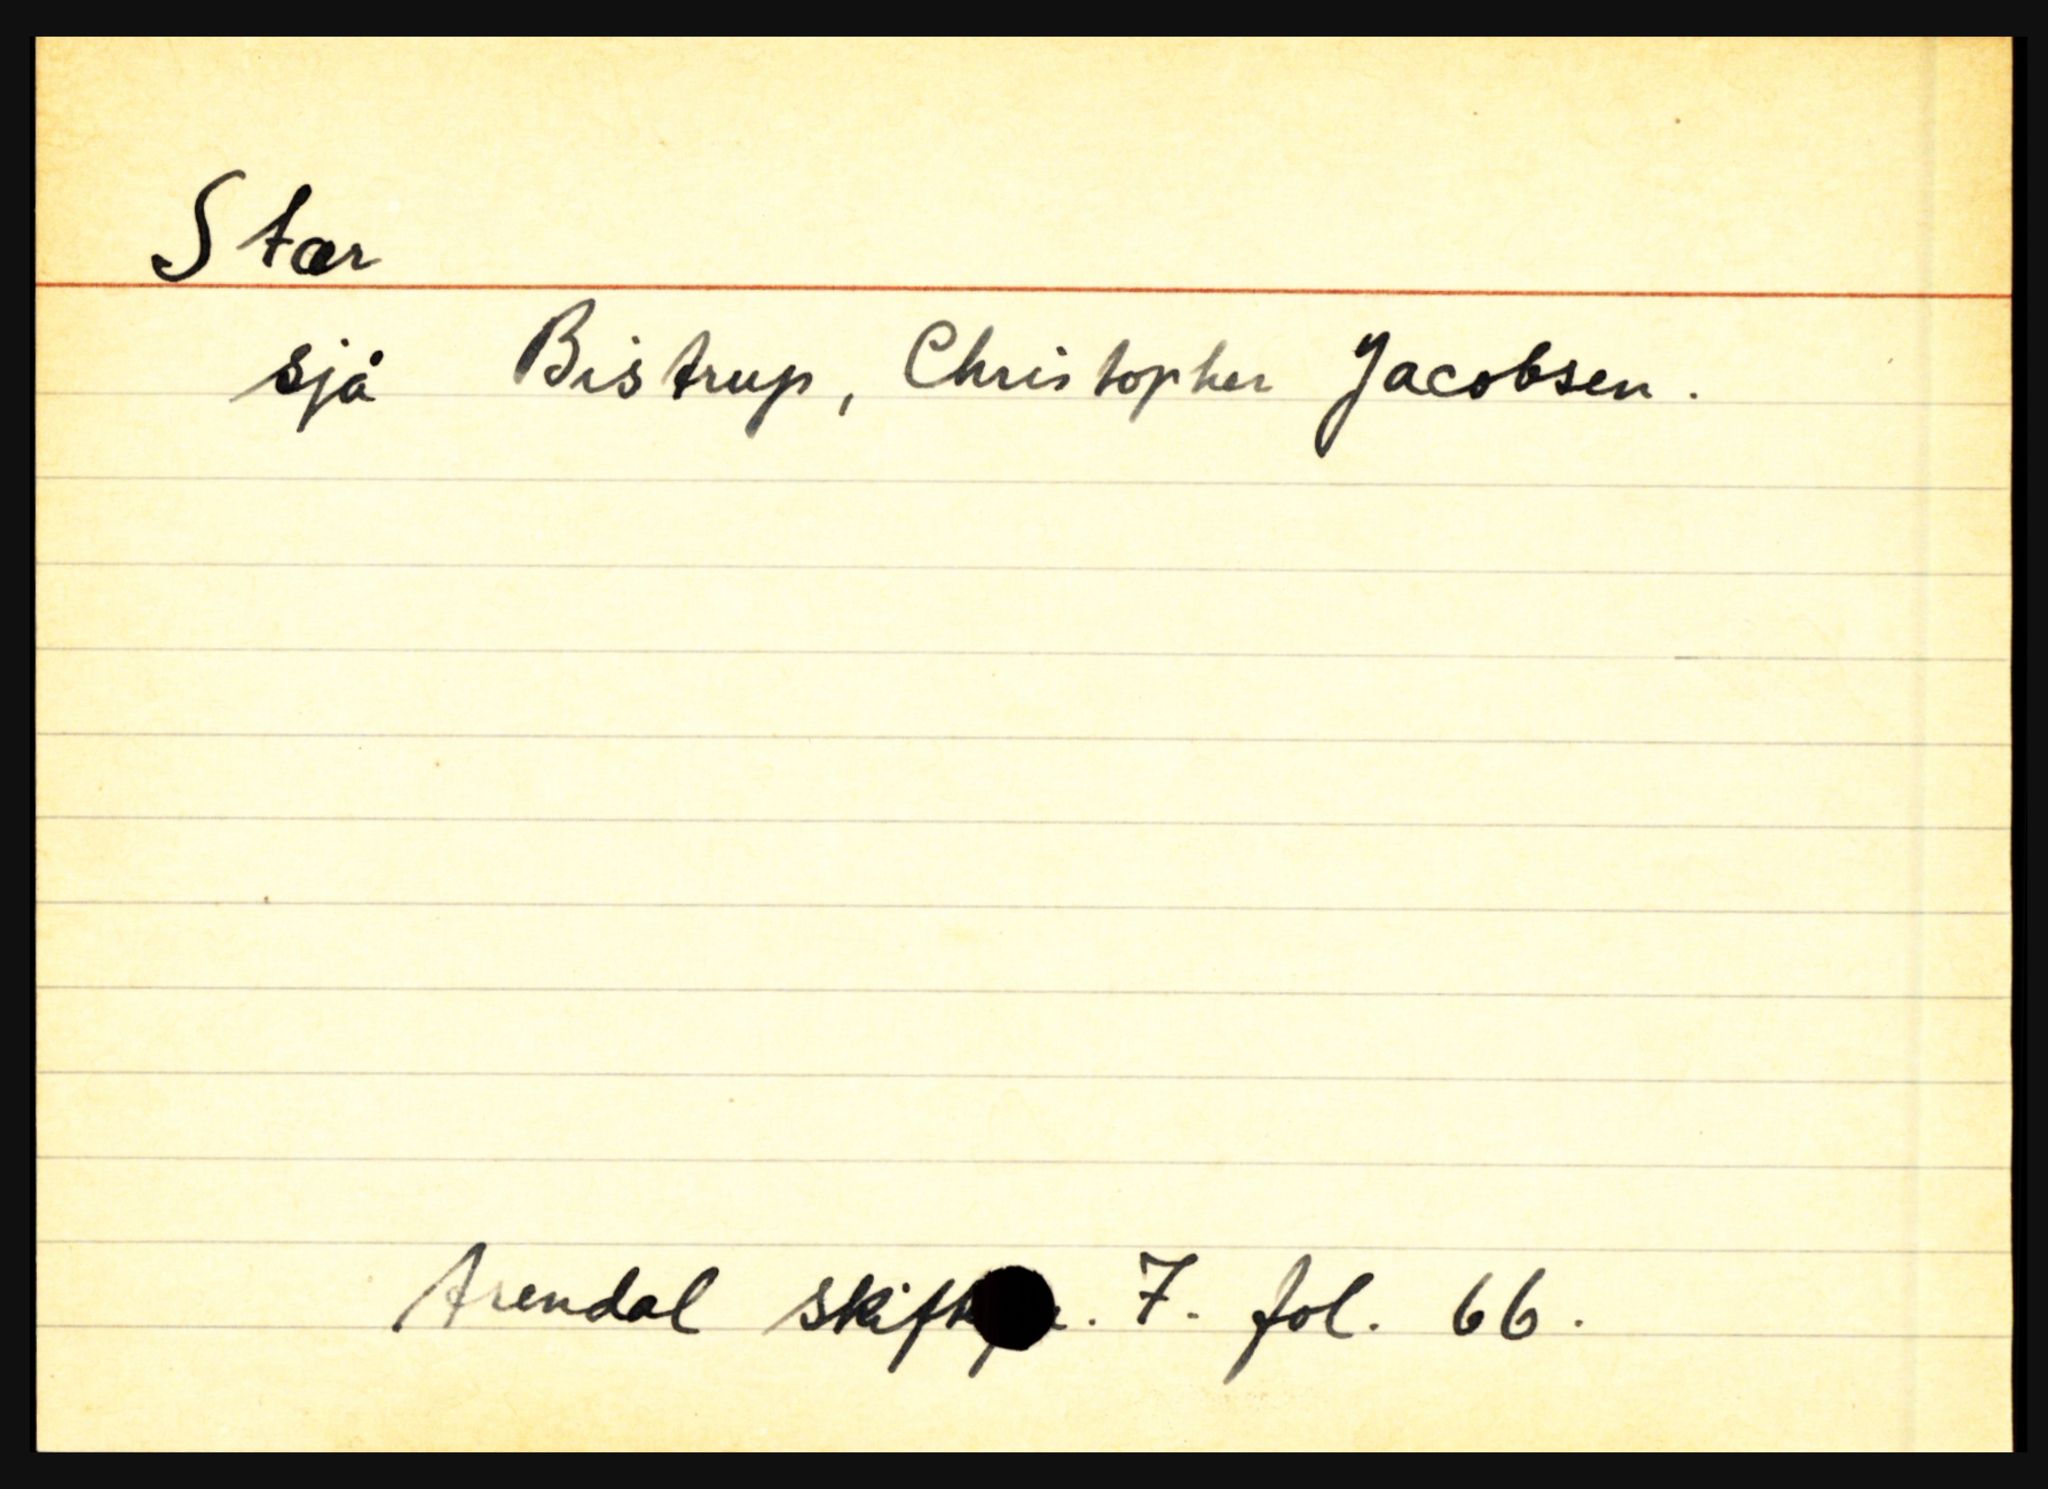 Stær
sjå Bistrup, Christopher Jacobsen.
Arendal 7. fol. 66.